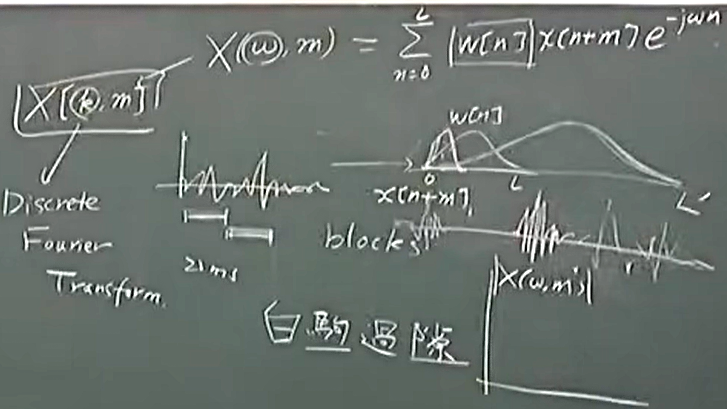 X(ω, m) = Σ_{n=0}^{L} |W[n]| x[n+m] e^{-jωn}
X[k, m]
Discrete
Fourier
Transform.
21ms
W[n]
0 L L'
x[n+m]
blocks
|X(ω, m)|
白駒過隙